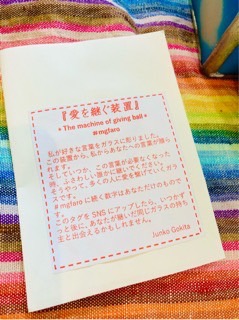 『愛を継ぐ装置』
* The machine of giving ball *
#mgfaro
私が好きな言葉をガラスに彫りました。
この装置から、私からあなたへの言葉が贈ら
れます。
そしていつか、この言葉が必要なくなった
時、ふさわしい誰かに継いでください。
そうやって、多くの人に愛を繋げていくガラ
スです。
#mgfaro に続く数字はあなただけのもので
す。
このタグを SNS にアップしたら、いつかず
っと後に、あなたが継いだ同じガラスの持ち
主と出会えるかもしれません。
Junko Gokita